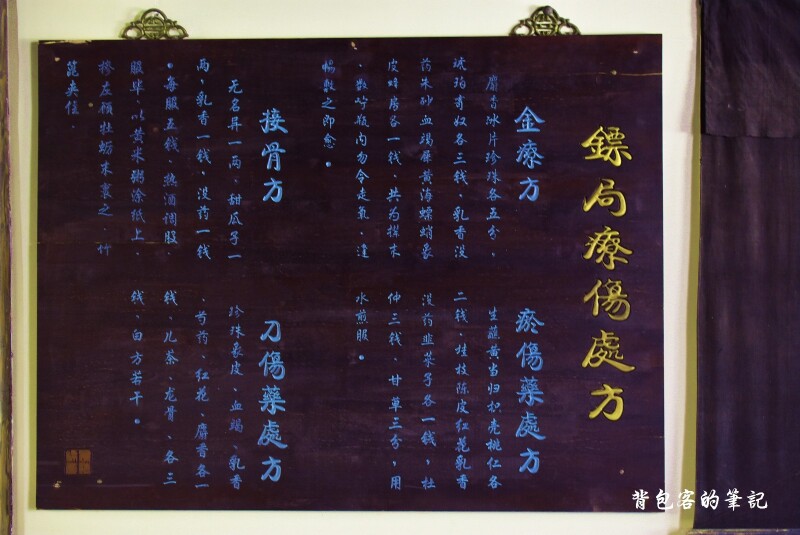 鏢局療傷處方
金療方
麝香冰片珍珠各五分，
琥珀青奴各三钱、乳香没
药朱砂血竭藤黄海螵蛸象
皮蜂房各一钱、共为撰末
、散兮瓶内勿令走氣、逢
惕散之即愈。
瘀傷藥處方
生蘸黄当归枳壳桃仁各
二钱、桂枝陈皮红花乳香
没药韭菜子各一钱，杜
仲三钱、甘草三分，用
水煎服。
接骨方
无名异一两、甜瓜子一
两，乳香一钱、没药一钱
。每服五钱、热酒调服.
服毕、以黄米粥涂纸上、
掺左顾牡蛎末裹之.竹
篦夹住.
刀傷藥處方
珍珠象皮、血竭、乳香
、芍药、红花、麝香各一
钱、儿茶、龙骨、各三
钱、白方若干。
背包客的筆記